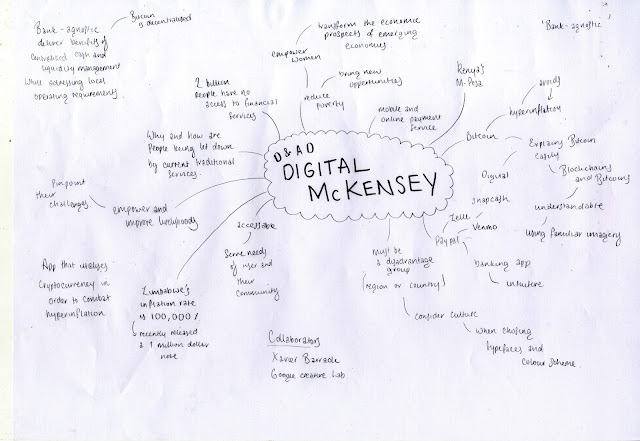 Bank-agnostic
deliver benefits of
centralised cash and
liquidity management
while adressing local
operating requirements.
Bitcoin
is decentralised
empower
women
transform the economic
prospects of emerging
economies.
bring new
opportunities
reduce
poverty
'Bank-agnostic'
2 billion
people have no
access to financial
services
mobile and
online payment
service
Kenya's
M-Pesa
Why and how are
People being let down
by current traditional
services.
D&AD
DIGITAL
McKENSEY
Bitcoin
avoids
hyperinflation
Explains Bitcoin
easily
Blockchains
and Bitcoins
understandable
using familiar imagery
Digital
Snapcash
Zelle
Venmo
Paypal
banking app
Pinpoint
their
challenges
empower and
improve livelihoods
accessable
Serve needs
of user and
their
community
must be
a disadvantage
group
(region or country)
consider culture
when chosing
typefaces and
colour scheme
App that utalizes
Cryptocurrency in
order to combat
hyperinflation
Zimbabwe's
inflation rate
is 100,000%
recently released
a 1 million dollar
note
Collaborators
Google creative Lab